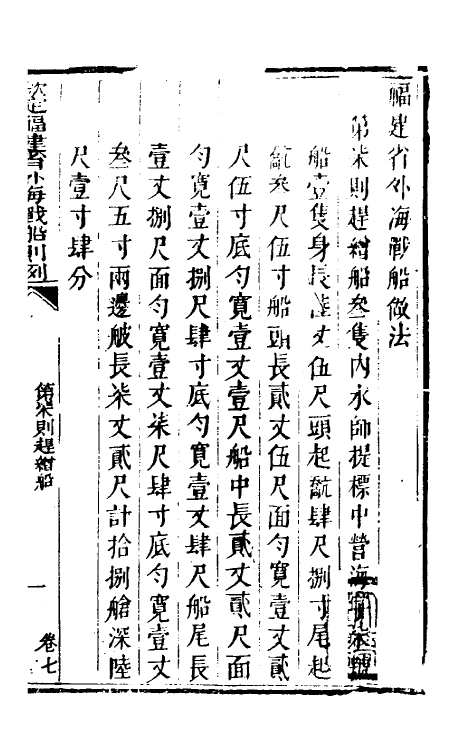 福建省外海戰船做法
第柒則趕繒船叁隻內水師提標中營海
船壹隻身長陸丈伍尺頭起䑨肆尺捌寸尾起
䑨叁尺伍寸船頭長貳丈伍尺面勻寬壹丈貳
尺伍寸底勻寬壹丈壹尺船中長貳丈貳尺面
勻寬壹丈捌尺肆寸底勻寬壹丈肆尺船尾長
壹丈捌尺面勻寬壹丈柒尺肆寸底勻寬壹丈
叁尺五寸兩邊䑺長柒丈貳尺計拾捌艙深陸
尺壹寸肆分
欽定福建省外海戰船則例
第柒則趕繒船
一
卷七